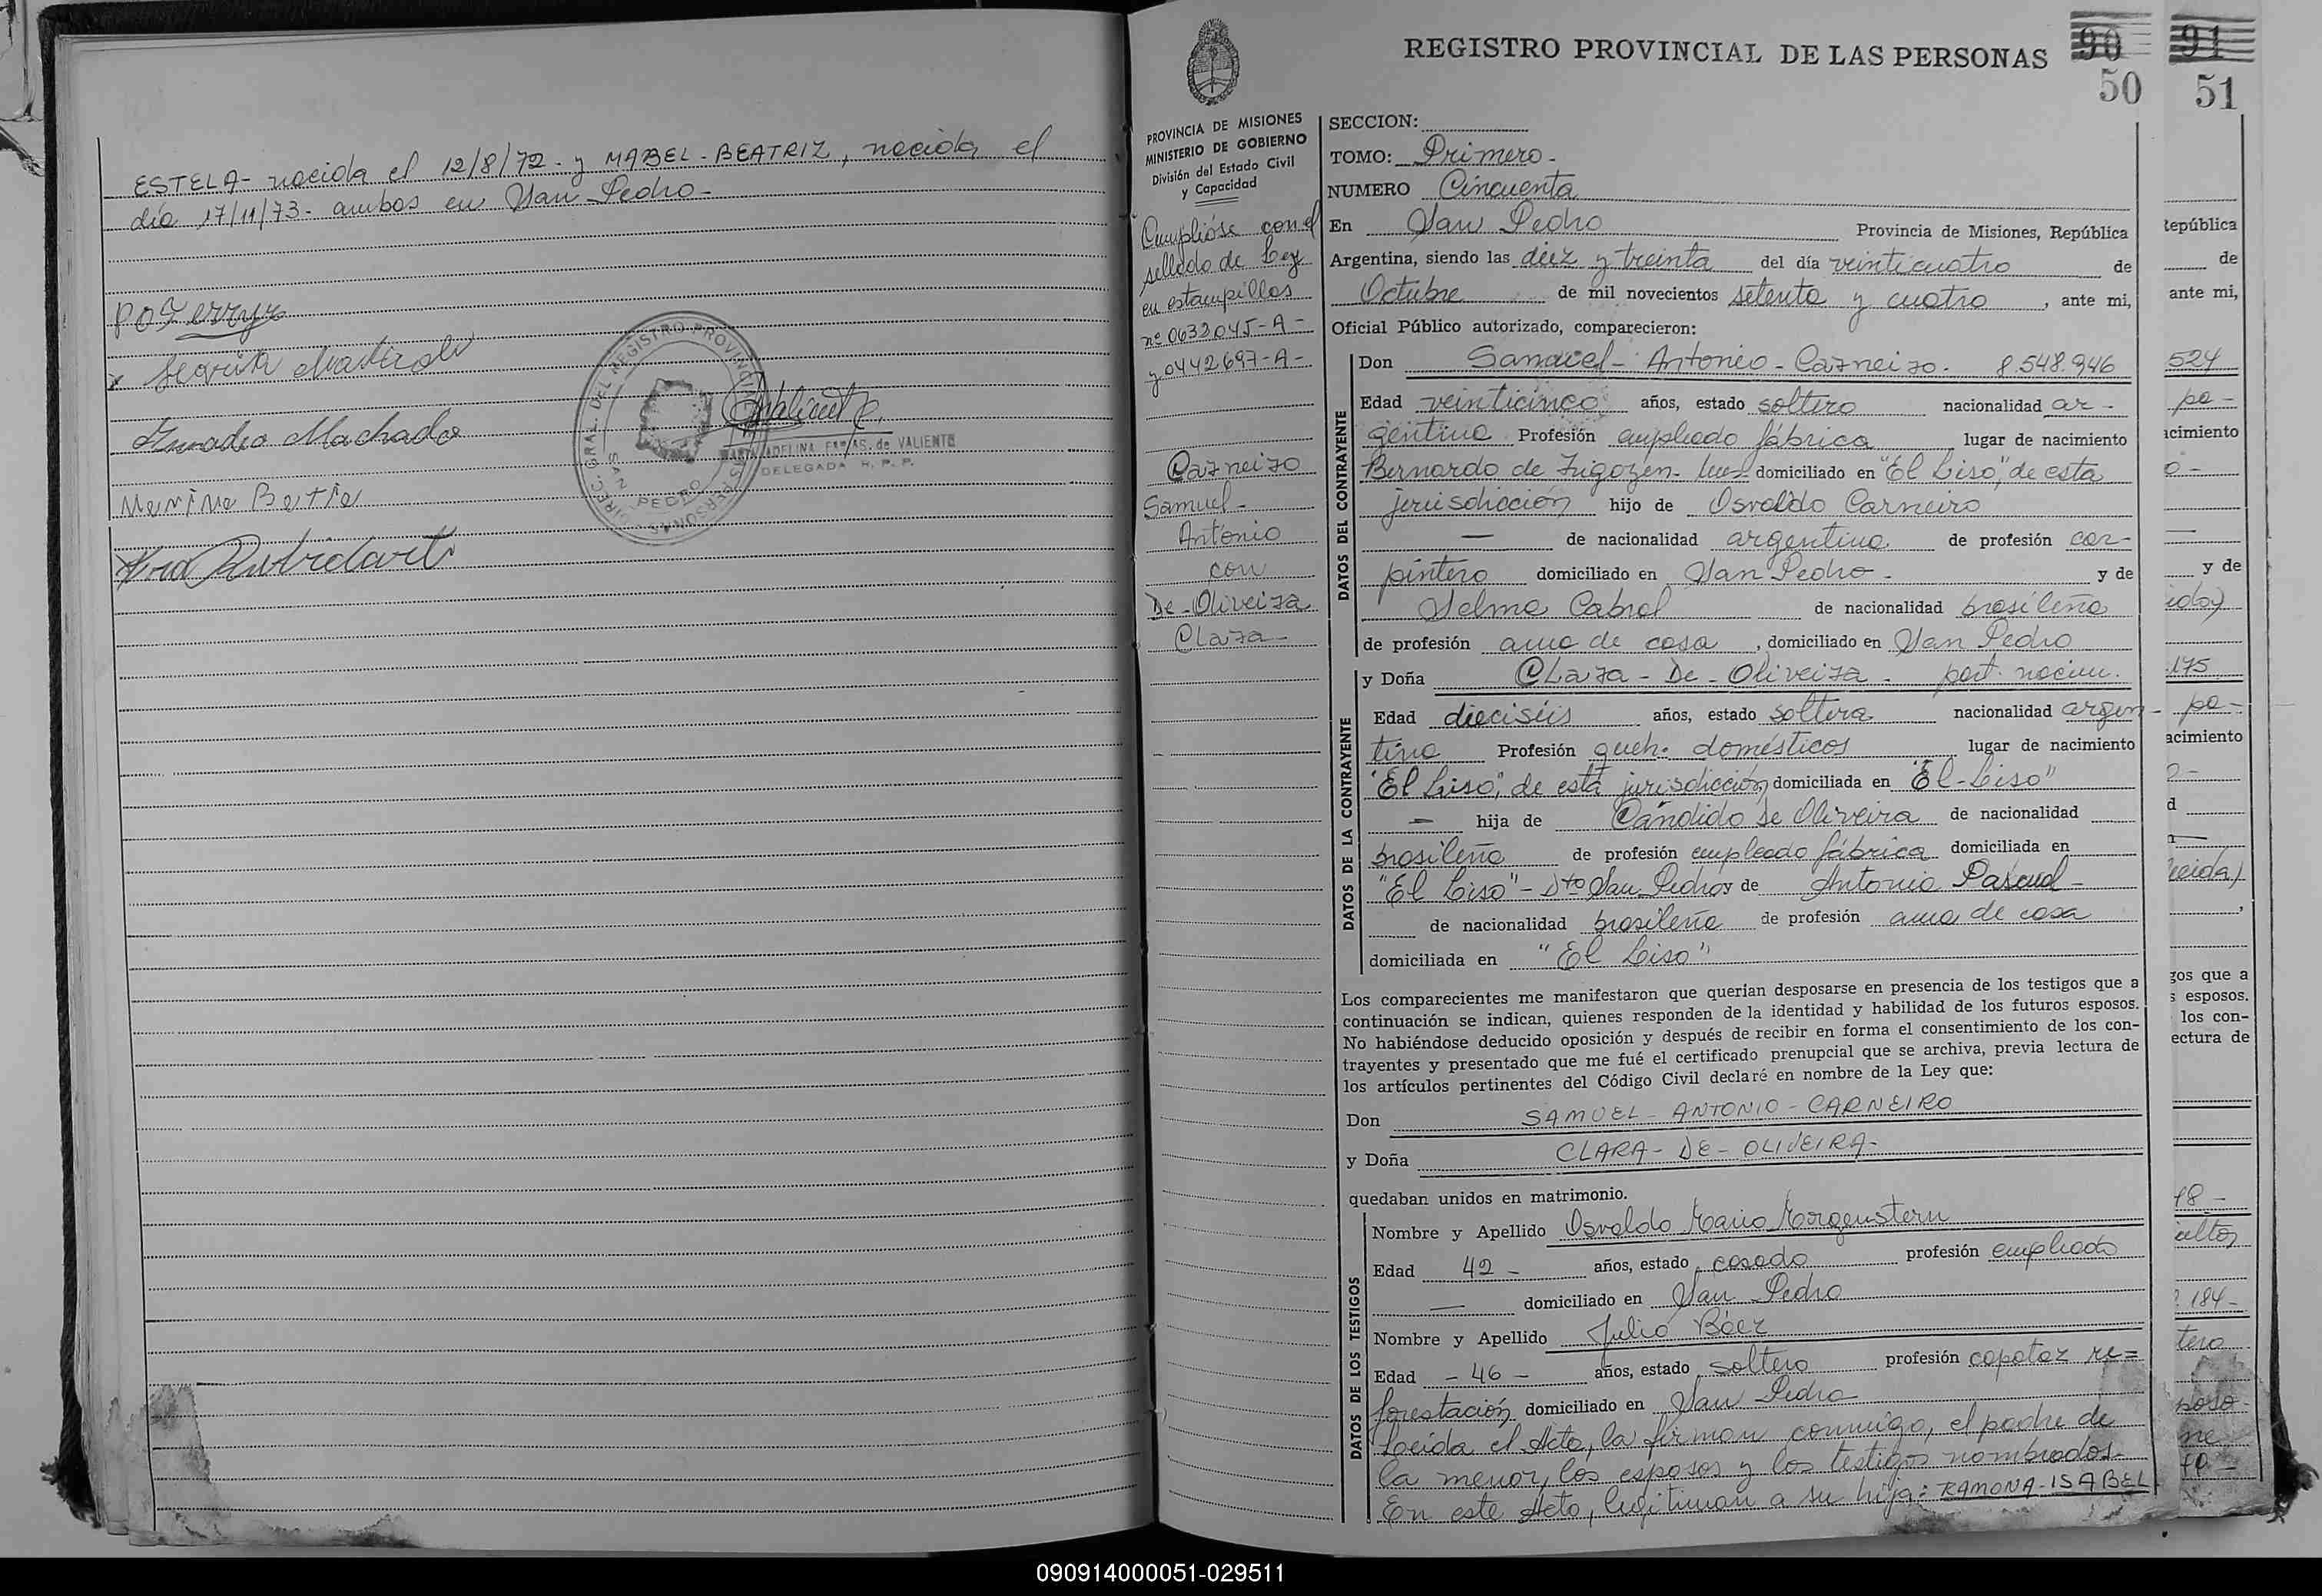 ESTELA- nacida el 12/8/72- y MABEL-BEATRIZ, nacida el
día 17/11/73- ambas en San Pedro-
Amadeo Machado
DIREC. GRAL. DEL REGISTRO PROVINCIAL
PERSONAS
SAN PEDRO
ADELINA de VALIENTE
DELEGADA R. P. P.
REGISTRO PROVINCIAL DE LAS PERSONAS
90
50
PROVINCIA DE MISIONES
MINISTERIO DE GOBIERNO
División del Estado Civil
y Capacidad
Cumplióse con el
sellado de Ley
en estampillas
nº 0633045-A-
y 0442697-A-
Carneiro
Samuel-
Antonio
con
De-Oliveira
Clara-
SECCION:
TOMO: Primero-
NUMERO Cincuenta
En San Pedro Provincia de Misiones, República
Argentina, siendo las diez y treinta del día veinticuatro de
Octubre de mil novecientos setenta y cuatro, ante mi,
Oficial Público autorizado, comparecieron:
DATOS DEL CONTRAYENTE
Don Samuel- Antonio- Carneiro- 8.548.946
Edad veinticinco años, estado soltero nacionalidad ar-
gentina Profesión empleado fábrica lugar de nacimiento
Bernardo de Irigozen- domiciliado en "El Liso", de esta
jurisdicción hijo de Osvaldo Carneiro
— de nacionalidad argentina de profesión car-
pintero domiciliado en San Pedro- y de
Selma Cabral de nacionalidad brasileña
de profesión ama de casa, domiciliado en San Pedro
DATOS DE LA CONTRAYENTE
y Doña Clara- De- Oliveira- part. nacim.
Edad dieciséis años, estado soltera nacionalidad argen-
tina Profesión queh. domésticos lugar de nacimiento
"El Liso", de esta jurisdicción domiciliada en "El-Liso"
— hija de Cándido de Oliveira de nacionalidad
brasileña de profesión empleado fábrica domiciliada en
"El Liso"- Dto San Pedro y de Antonia Pascual-
de nacionalidad brasileña de profesión ama de casa
domiciliada en "El Liso"
Los comparecientes me manifestaron que querían desposarse en presencia de los testigos que a
continuación se indican, quienes responden de la identidad y habilidad de los futuros esposos.
No habiéndose deducido oposición y después de recibir en forma el consentimiento de los con-
trayentes y presentado que me fué el certificado prenupcial que se archiva, previa lectura de
los artículos pertinentes del Código Civil declaré en nombre de la Ley que:
Don SAMUEL- ANTONIO- CARNEIRO
y Doña CLARA- DE- OLIVEIRA-
quedaban unidos en matrimonio.
DATOS DE LOS TESTIGOS
Nombre y Apellido Osvaldo Mario Morgenstern
Edad 42- años, estado casado profesión empleado
— domiciliado en San Pedro
Nombre y Apellido Julio Báez
Edad -46- años, estado soltero profesión capataz re=
forestación domiciliado en San Pedro
Leída el Acta, la firman conmigo, el padre de
la menor, los esposos y los testigos nombrados-
En este Acto, legitiman a su hija: RAMONA-ISABEL
91
51
República
de
ante mi,
524
pa-
acimiento
o-
y de
175
pa-
acimiento
o-
d
gos que a
s esposos.
los con-
ectura de
48-
184-
090914000051-029511